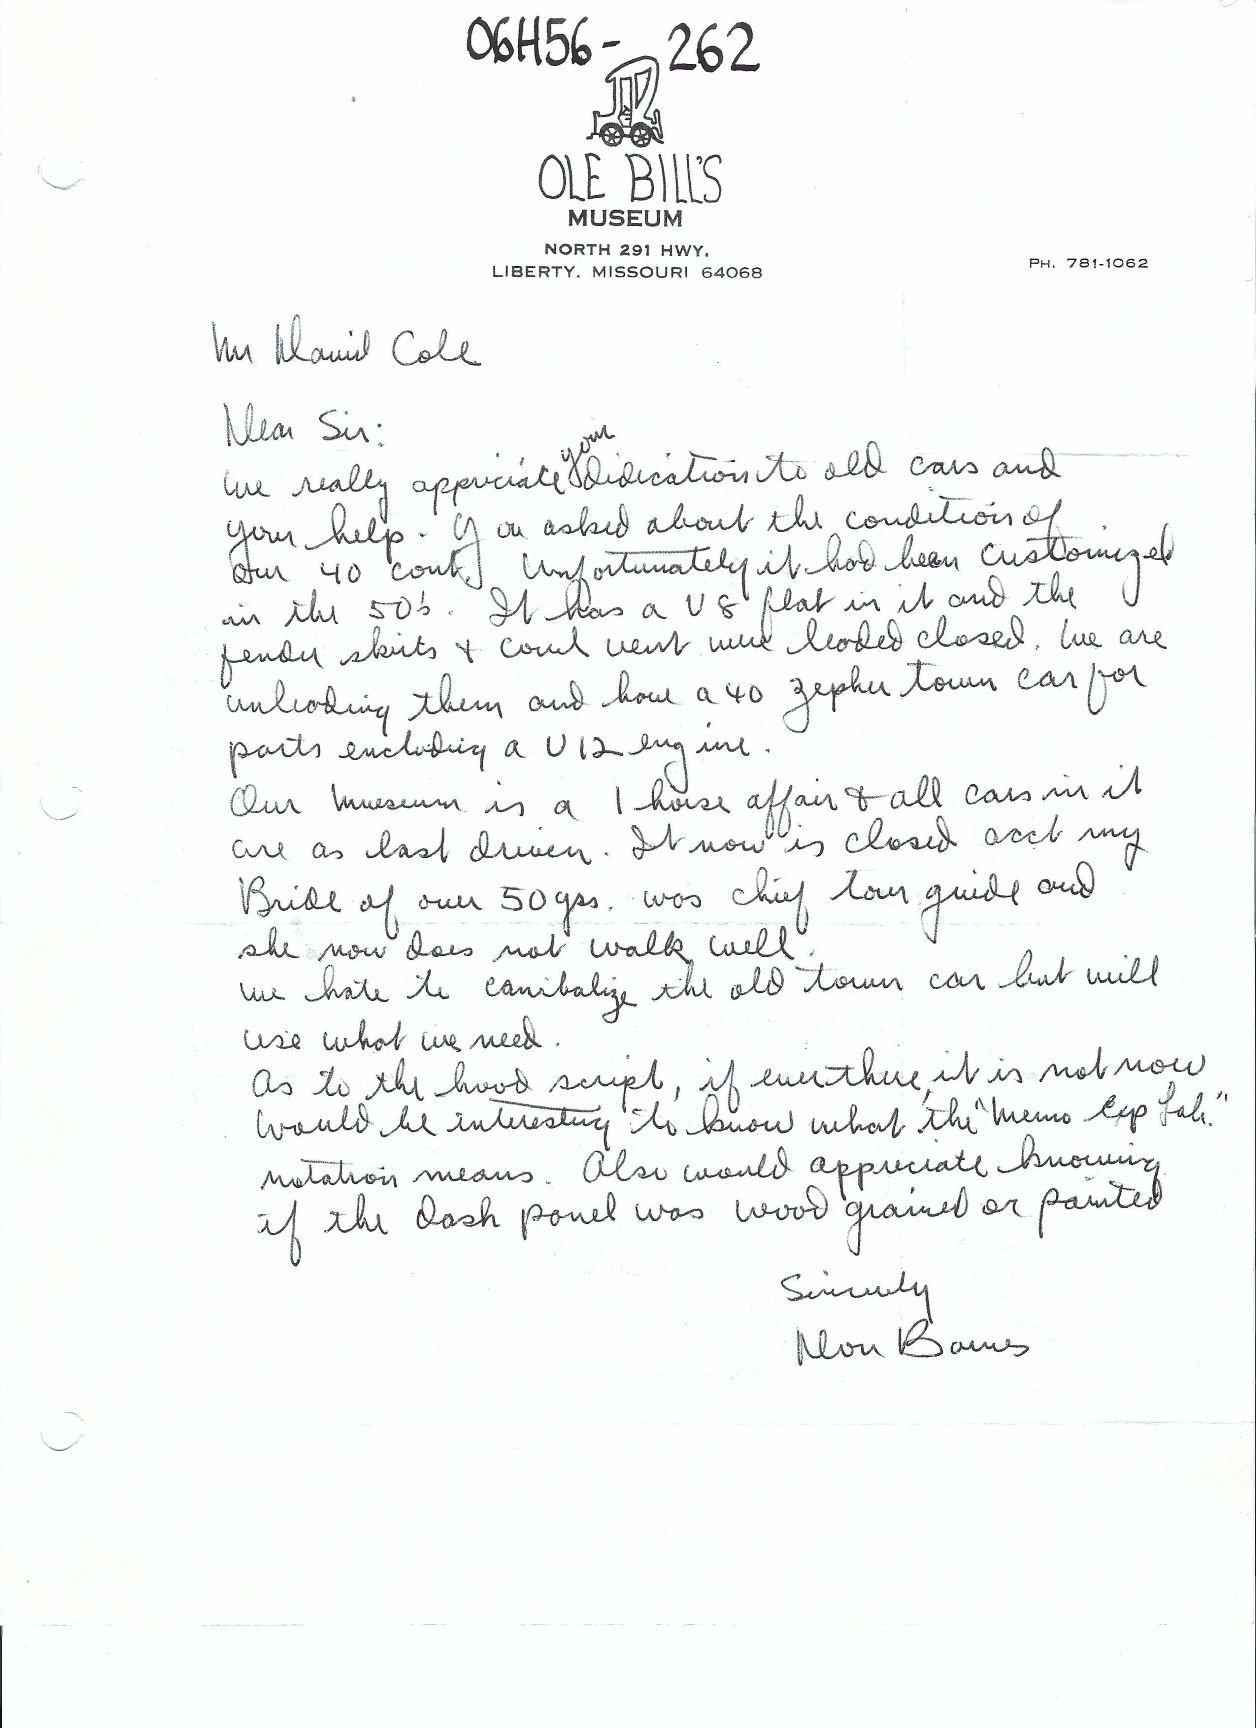 06H56- 262
OLE BILL'S
MUSEUM
NORTH 291 HWY.
LIBERTY, MISSOURI 64068
PH. 781-1062
Mr David Cole
Dear Sir:
We really appriciate your didication to old cars and
your help. You asked about the condition of
our 40 cont. Unfortunately it had been customized
in the 50's. It has a V8 flat in it and the
fender skirts & cowl vent were leaded closed. We are
unleading them and have a 40 zepher town car for
parts including a V12 engine.
Our Mueseum is a 1 horse affair & all cars in it
are as last driven. It now is closed acct my
Bride of over 50 yrs. was chief tour guide and
she now does not walk well.
We hate to canibalize the old town car but will
use what we need.
As to the hood script, if ever there, it is not now
Would be interesting to know what the "Memo Exp Lab."
notation means. Also would appreciate knowing
if the dash panel was wood grained or painted
Sincerely
Don Barnes